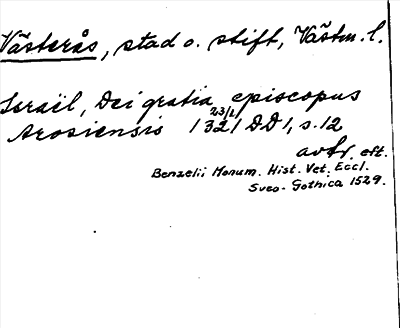 Västerås, stad o. stift, Västm. l.
Israël, Dei gratia episcopus
Arosiensis 1321 23/2 DD1, s. 12
avskr. eft.
Benzelii Monum. Hist. Vet. Eccl.
Sveo-Gothica 1529.